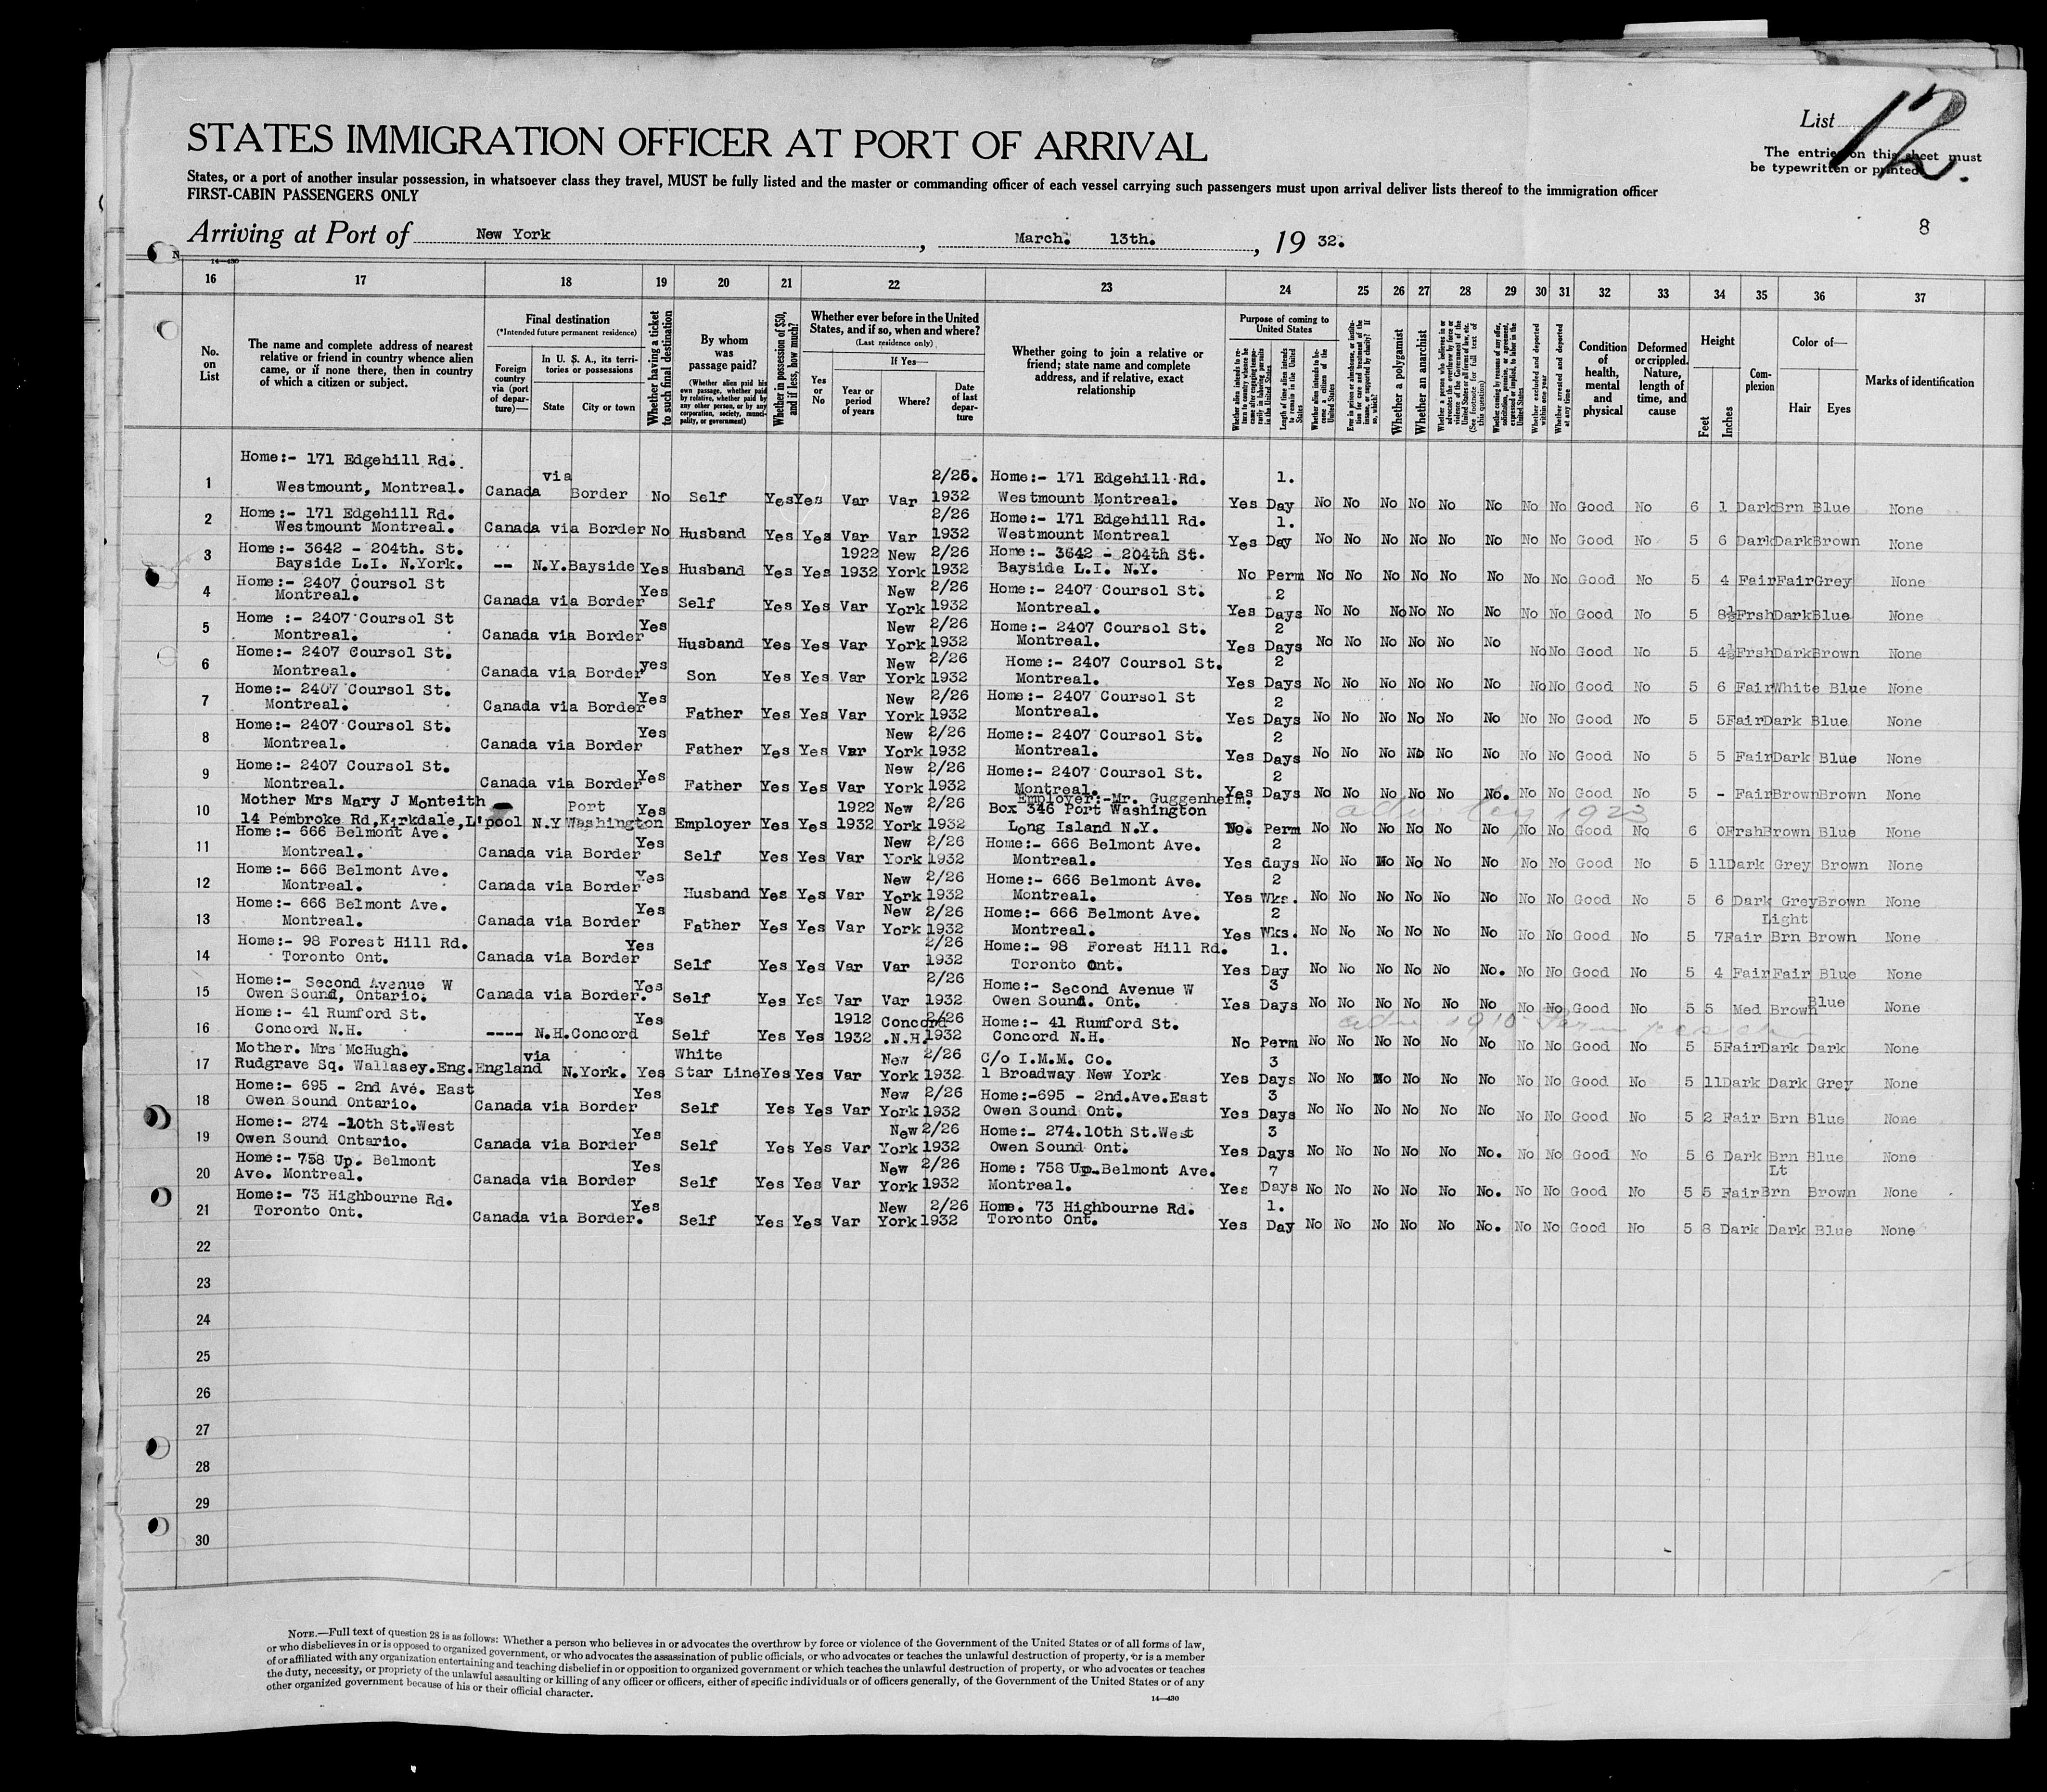 List 12.
STATES IMMIGRATION OFFICER AT PORT OF ARRIVAL
The entries on this sheet must
be typewritten or printed.
States, or a port of another insular possession, in whatsoever class they travel, MUST be fully listed and the master or commanding officer of each vessel carrying such passengers must upon arrival deliver lists thereof to the immigration officer
FIRST-CABIN PASSENGERS ONLY
8
Arriving at Port of New York, March. 13th., 19 32.
14—430
16 17 18 19 20 21 22 23 24 25 26 27 28 29 30 31 32 33 34 35 36 37
No. on List
The name and complete address of nearest relative or friend in country whence alien came, or if none there, then in country of which a citizen or subject.
Final destination
(*Intended future permanent residence)
Foreign country via (port of departure)—
In U. S. A., its territories or possessions
State
City or town
Whether having a ticket to such final destination
By whom was passage paid?
(Whether alien paid his own passage, whether paid by relative, whether paid by any other person, or by any corporation, society, municipality, or government)
Whether in possession of $50, and if less, how much?
Whether ever before in the United States, and if so, when and where?
(Last residence only)
If Yes—
Yes or No
Year or period of years
Where?
Date of last departure
Whether going to join a relative or friend; state name and complete address, and if relative, exact relationship
Purpose of coming to United States
Length of time alien intends to remain in the United States
Whether alien intends to become a citizen of the United States
Whether a polygamist
Whether an anarchist
Whether excluded and deported within one year
Whether arrested and deported at any time
Condition of health, mental and physical
Deformed or crippled. Nature, length of time, and cause
Height
Feet
Inches
Complexion
Color of—
Hair
Eyes
Marks of identification
1 Home:- 171 Edgehill Rd. Westmount, Montreal. Canada via Border No Self Yes Yes Var Var 2/26. 1932 Home:- 171 Edgehill Rd. Westmount Montreal. Yes 1. Day No No No No No No No No Good No 6 1 Dark Brn Blue None
2 Home:- 171 Edgehill Rd. Westmount Montreal. Canada via Border No Husband Yes Yes Var Var 2/26 1932 Home:- 171 Edgehill Rd. Westmount Montreal Yes 1. Day No No No No No No No No Good No 5 6 Dark Dark Brown None
3 Home:- 3642 - 204th. St. Bayside L.I. N.York. -- N.Y. Bayside Yes Husband Yes Yes 1922 1932 New York 2/26 1932 Home:- 3642 - 204th St. Bayside L.I. N.Y. No Perm No No No No No No No No Good No 5 4 Fair Fair Grey None
4 Home:- 2407 Coursol St Montreal. Canada via Border Yes Self Yes Yes Var New York 2/26 1932 Home:- 2407 Coursol St. Montreal. Yes 2 Days No No No No No No No No Good No 5 8½ Frsh Dark Blue None
5 Home :- 2407 Coursol St Montreal. Canada via Border Yes Husband Yes Yes Var New York 2/26 1932 Home:- 2407 Coursol St. Montreal. Yes 2 Days No No No No No No No No Good No 5 4½ Frsh Dark Brown None
6 Home:- 2407 Coursol St. Montreal. Canada via Border yes Son Yes Yes Var New York 2/26 1932 Home:- 2407 Coursol St. Montreal. Yes 2 Days No No No No No No No No Good No 5 6 Fair White Blue None
7 Home:- 2407 Coursol St. Montreal. Canada via Border Yes Father Yes Yes Var New York 2/26 1932 Home:- 2407 Coursol St Montreal. Yes 2 Days No No No No No No No No Good No 5 5 Fair Dark Blue None
8 Home:- 2407 Coursol St. Montreal. Canada via Border Yes Father Yes Yes Var New York 2/26 1932 Home:- 2407 Coursol St. Montreal. Yes 2 Days No No No No No No No No Good No 5 5 Fair Dark Blue None
9 Home:- 2407 Coursol St. Montreal. Canada via Border Yes Father Yes Yes Var New York 2/26 1932 Home:- 2407 Coursol St. Montreal. Yes 2 Days No No No No No No. No No Good No 5 - Fair Brown Brown None
10 Mother Mrs Mary J Monteith 14 Pembroke Rd,Kirkdale,L'pool N.Y Port Washington Yes Employer Yes Yes 1922 1932 New York 2/26 1932 Employer:-Mr. Guggenheim. Box 346 Port Washington Long Island N.Y. No. Perm No No No No No No No No Good No 6 0 Frsh Brown Blue None
1923
11 Home:- 666 Belmont Ave. Montreal. Canada via Border Yes Self Yes Yes Var New York 2/26 1932 Home:- 666 Belmont Ave. Montreal. Yes 2 days No No No No No No No No Good No 5 11 Dark Grey Brown None
12 Home:- 666 Belmont Ave. Montreal. Canada via Border Yes Husband Yes Yes Var New York 2/26 1932 Home:- 666 Belmont Ave. Montreal. Yes 2 Wks. No No No No No No No No Good No 5 6 Dark Grey Brown None
13 Home:- 666 Belmont Ave. Montreal. Canada via Border Yes Father Yes Yes Var New York 2/26 1932 Home:- 666 Belmont Ave. Montreal. Yes 2 Wks. No No No No No No No No Good No 5 7 Fair Light Brn Brown None
14 Home:- 98 Forest Hill Rd. Toronto Ont. Canada via Border Yes Self Yes Yes Var Var 2/26 1932 Home:- 98 Forest Hill Rd. Toronto Ont. Yes 1. Day No No No No No No. No No Good No 5 4 Fair Fair Blue None
15 Home:- Second Avenue W Owen Sound, Ontario. Canada via Border. Yes Self Yes Yes Var Var 2/26 1932 Home:- Second Avenue W Owen Sound. Ont. Yes 3 Days No No No No No No No No Good No 5 5 Med Brown Blue None
16 Home:- 41 Rumford St. Concord N.H. ---- N.H. Concord Yes Self Yes Yes 1912 1932 Concord .N.H. 2/26 1932 Home:- 41 Rumford St. Concord N.H. No Perm No No No No No No No No Good No 5 5 Fair Dark Dark None
17 Mother. Mrs McHugh. Rudgrave Sq. Wallasey.Eng. England via N.York. Yes White Star Line Yes Yes Var New York 2/26 1932 C/o I.M.M. Co. 1 Broadway New York Yes 3 Days No No No No No No No No Good No 5 11 Dark Dark Grey None
18 Home:- 695 - 2nd Ave. East Owen Sound Ontario. Canada via Border Yes Self Yes Yes Var New York 2/26 1932 Home:-695 - 2nd.Ave.East Owen Sound Ont. Yes 3 Days No No No No No No No No Good No 5 2 Fair Brn Blue None
19 Home:- 274 -10th St.West Owen Sound Ontario. Canada via Border Yes Self Yes Yes Var New York 2/26 1932 Home:- 274.10th St.West Owen Sound Ont. Yes 3 Days No No No No No No. No No Good No 5 6 Dark Brn Blue None
20 Home:- 758 Up. Belmont Ave. Montreal. Canada via Border Yes Self Yes Yes Var New York 2/26 1932 Home: 758 Up.Belmont Ave. Montreal. Yes 7 Days No No No No No No. No No Good No 5 5 Fair Lt Brn Brown None
21 Home:- 73 Highbourne Rd. Toronto Ont. Canada via Border. Yes Self Yes Yes Var New York 2/26 1932 Home. 73 Highbourne Rd. Toronto Ont. Yes 1. Day No No No No No No. No No Good No 5 8 Dark Dark Blue None
22
23
24
25
26
27
28
29
30
NOTE.—Full text of question 28 is as follows: Whether a person who believes in or advocates the overthrow by force or violence of the Government of the United States or of all forms of law,
or who disbelieves in or is opposed to organized government, or who advocates the assassination of public officials, or who advocates or teaches the unlawful destruction of property, or is a member
of or affiliated with any organization entertaining and teaching disbelief in or opposition to organized government or which teaches the unlawful destruction of property, or who advocates or teaches
the duty, necessity, or propriety of the unlawful assaulting or killing of any officer or officers, either of specific individuals or of officers generally, of the Government of the United States or of any
other organized government because of his or their official character.
14—430